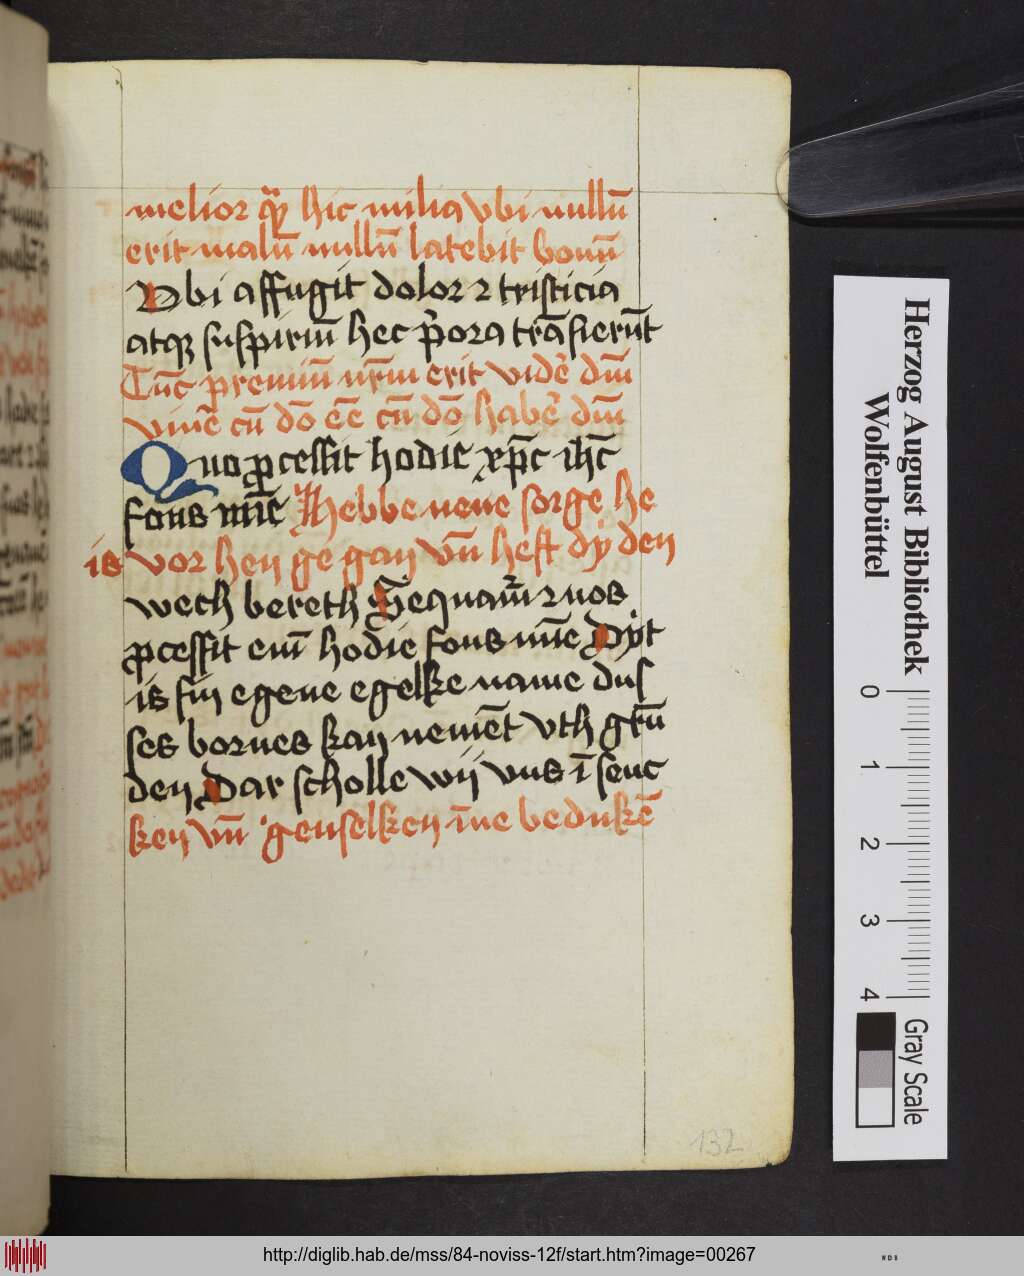 melior qͣ hic milia vbi nullū
erit malū nullū latebit bonū
Vbi affugit dolor ⁊ tristicia
atqꝫ suspiriū hec p̓ora trāsierūt
Tūc premiū nr̄m erit videꝰ dm̄
viuē cū dō eē cū dō habeꝰ dm̄
Quo ꝓcessit hodie xp̄c ih̄c
fons mīe Hebbe nene sorge he
is vor hen ge gan vn̄ heft dÿ den
wech bereth Sequam̓ ⁊ nos
ꝓcessit eni hodie fons mīe Dÿt
is sin egene egelke name dus
ses bornes kan nemēt vth grū
den Dar scholle wij vns ī senc
ken vn̄ genselken īne bedukē
132
Herzog August Bibliothek
Wolfenbüttel
0 1 2 3 4
Gray Scale
http://diglib.hab.de/mss/84-noviss-12f/start.htm?image=00267